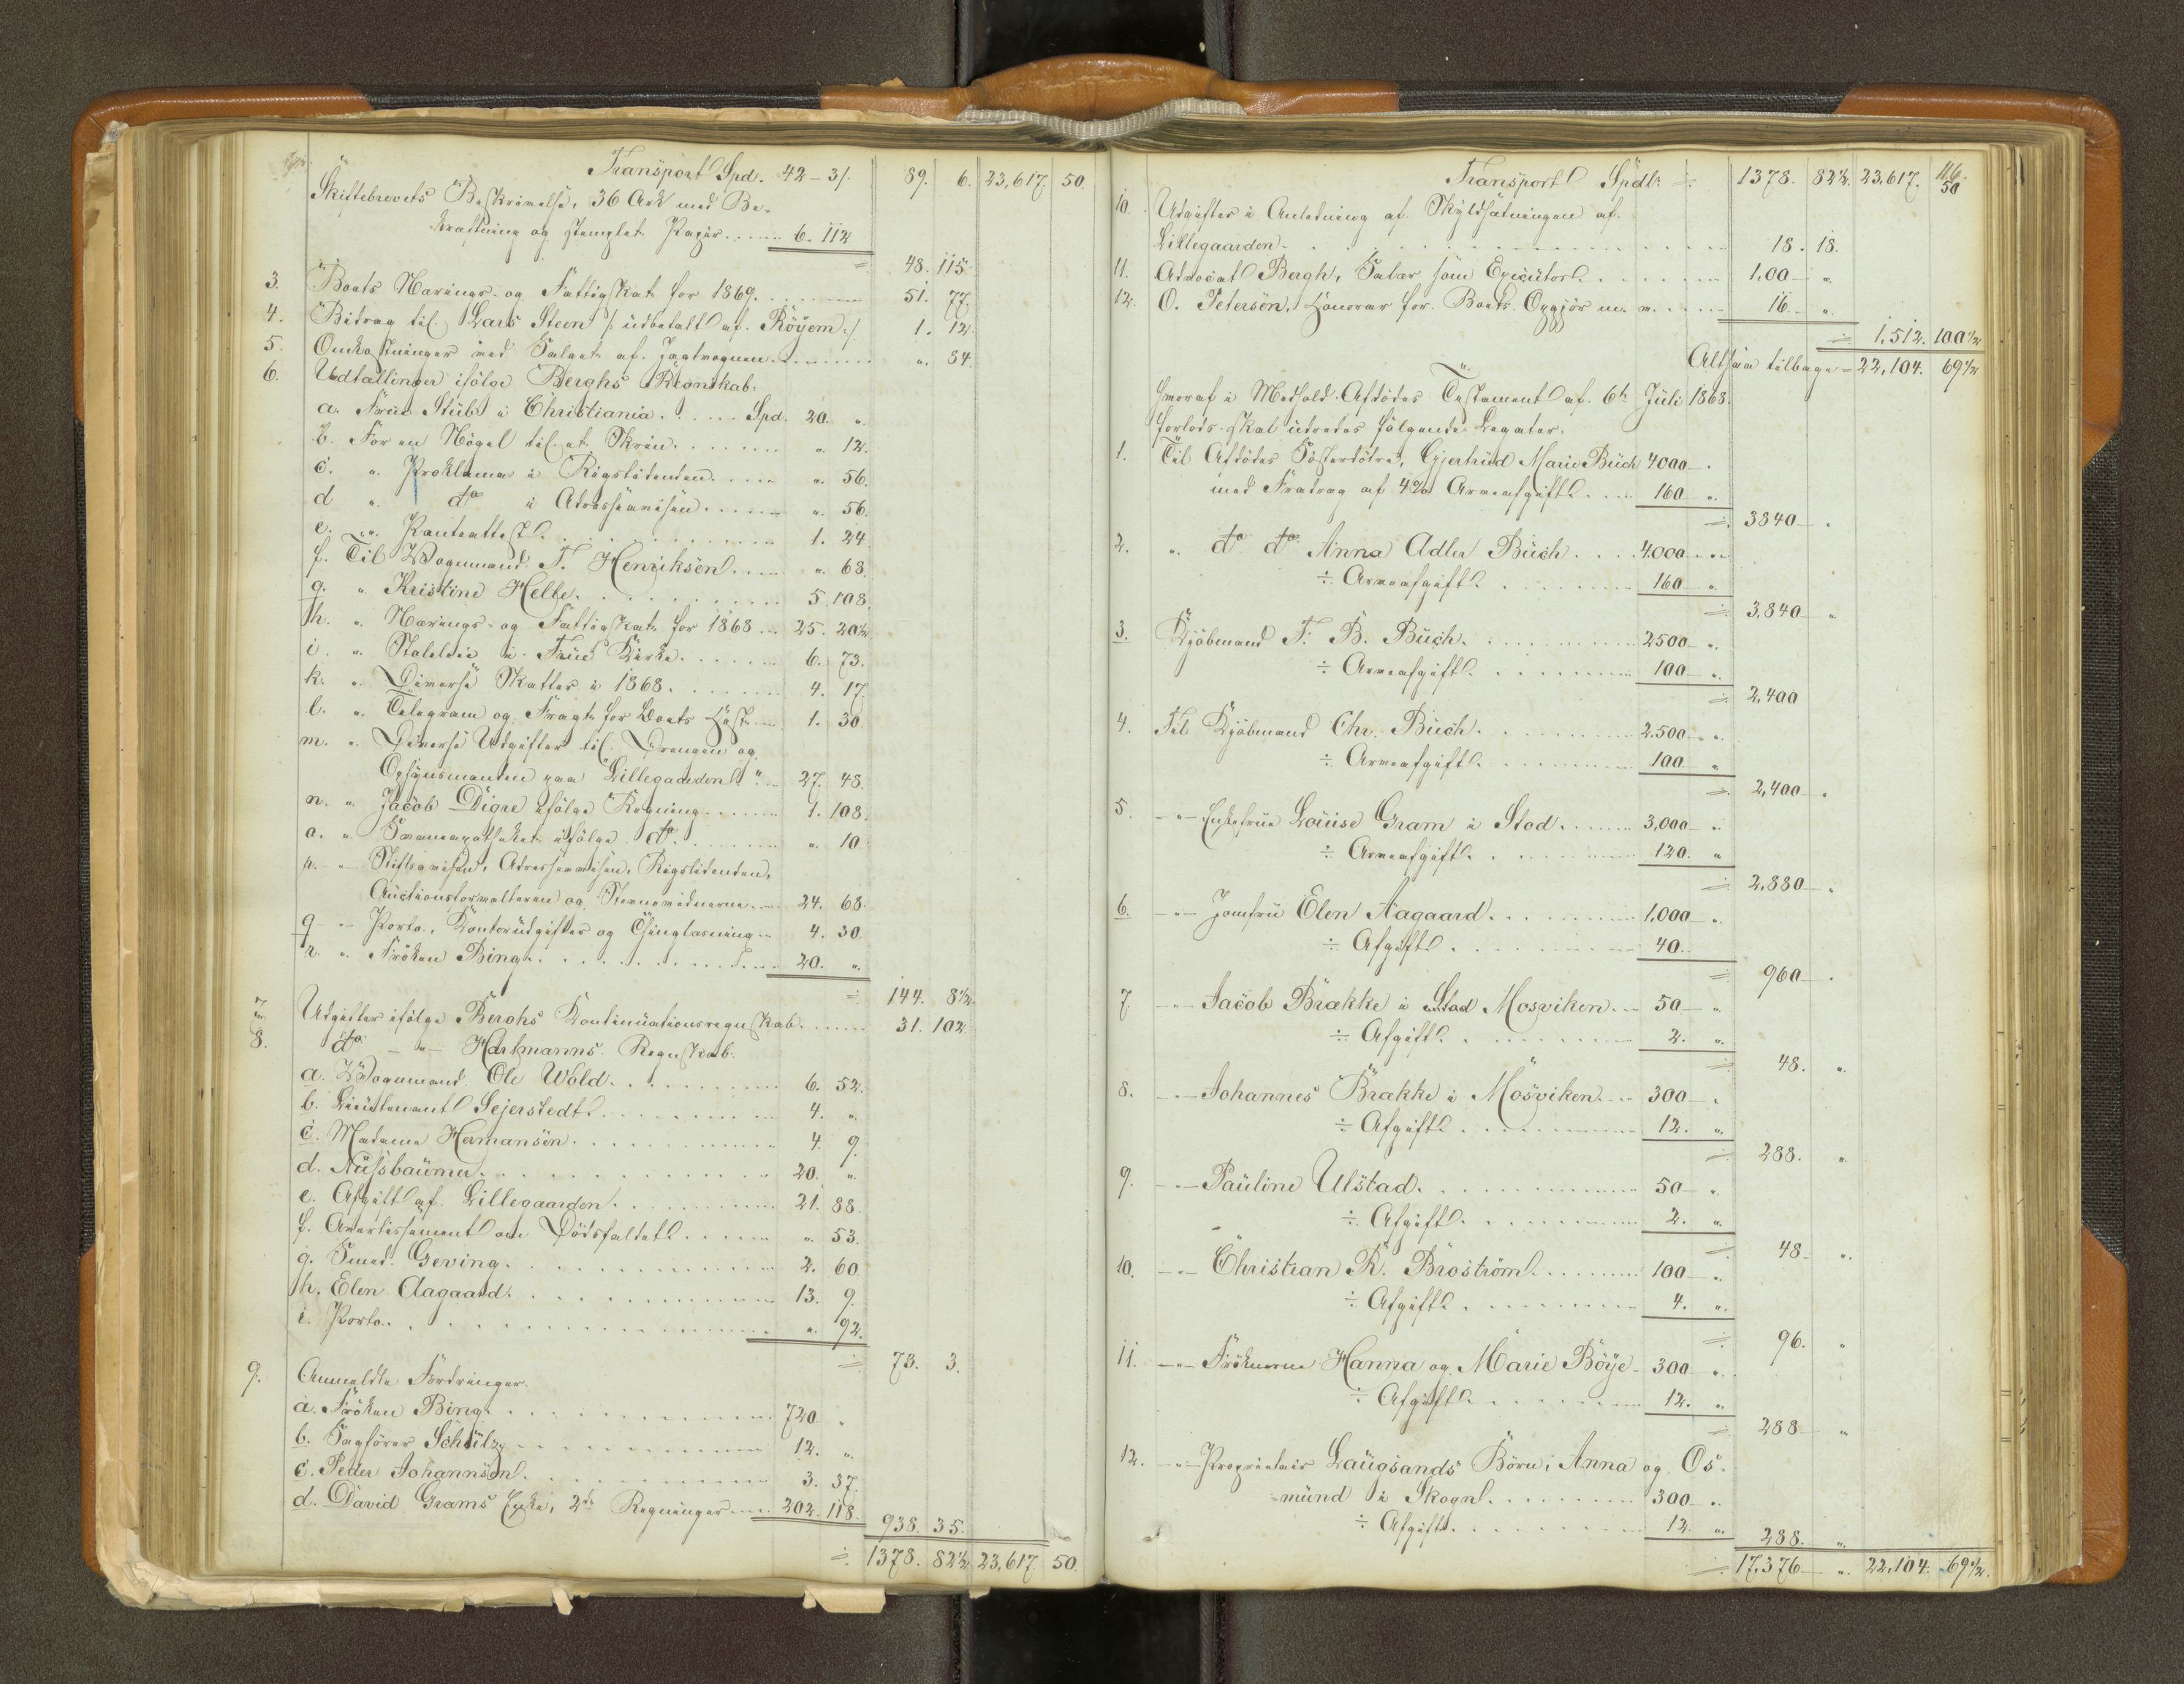 Transport Spd. 42 – 3/. 89. 6. 23,617. 50.
Skiftebrevets Beskrivelse, 36 Ark med Be-
kræftning og stemplet Papir ..... 6. 112
= 48. 115.
3. Boets Nærings- og Fattigskat for 1869. ..... 51. 77.
4. Bidrag til Lars Steen /: udbetalt af Röyem :/ 1. 12.
5. Omkostninger med Salget af Jagtvognen ..... „. 84.
6. Udtællinger ifölge Berghs Regnskab:
a. Frue Stub i Christiania ..... Spd. 20. „
b. For en Nögel til et Skrin ..... „. 12.
c. „ Proklama i Rigstidenden ..... „. 56.
d „ do i Adresseavisen ..... „. 56.
e. „ Panteattest ..... 1. 24.
f. Til Vognmand T. Henriksen ..... „. 68.
g. „ Kristine Helbe ..... 5. 108.
h. „ Nærings- og Fattigskat for 1868 ... 25. 20½.
i. „ Stoleleie i Frue Kirke ..... 6. 73.
k. „ Diverse Skatter i 1868. ..... 4. 17.
l. „ Telegram og Fragt for Boets Hest ... 1. 30.
m. „ Diverse Udgifter til Drengen og
Opsynsmanden paa Lillegaarden „ ... 27. 48.
n. „ Jacob Digre ifölge Regning ..... 1. 108.
o. „ Svaneapotheket ifölge do ..... „. 10.
p. „ Stiftsavisen, Adresseavisen, Rigstidenden,
Auctionsforvalteren og Stevnevidnerne ... 24. 68.
q – Porto, Kontorudgifter og Thinglæsning .. 4. 30.
r. „ Fröken Bing ..... 20. „
= 144. 8½.
7. Udgifter ifölge Berghs Kontinuationsregnskab ..... 31. 102.
8. do – „ – Hartmanns Regnskab.
a. Vognmand Ole Wold ..... 6. 52.
b. Lieutenant Sejerstedt ..... 4. „
c. Madame Hermansen ..... 4. 9.
d. Nussbaumer ..... 20. „
e. Afgift af Lillegaarden ..... 21. 88.
f. Avertissement om Dödsfaldet ..... „. 53.
g. Smed Geving ..... 2. 60.
h. Elen Aagaard ..... 13. 9.
i. Porto ..... „. 92.
= 73. 3.
9. Anmeldte Fordringer.
a. Fröken Bing ..... 720 „
b. Sagförer Schulz ..... 12. „
c. Peder Johannsen ..... 3. 37.
d. David Grams Enke, 2de Regninger ..... 202. 118.
938. 35.
= 1378. 82½. 23,617. 50.
116.
Transport Spdlr = 1378. 82½. 23,617. 50
10. Udgifter i Anledning af Skyldsætningen af
Lillegaarden ..... 18. 18.
11. Advocat Bergh, Salær som Executor ..... 1,00 – „
12. O. Petersen, Honorar for Boets Opgjör m. m. ..... 16 – „
= 1,512. 100½
Altsaa tilbage = 22,104. 69½
hvoraf i Medhold Afdödes Testament af 6te Juli 1868.
forlods skal udredes fölgende Legater.
1. Til Afdödes Sösterdötre, Gjertrud Marie Buch 4000 – .
med Fradrag af 4% Arveafgift .... 160 – „
= 3840 – .
2. „ do do Anna Adler Buch .... 4.000 – „
÷ Arveafgift ..... 160 – „
= 3,840 „
3. Kjöbmand F. B. Buch ..... 2500 – „
÷ Arveafgift ..... 100 – „
= 2,400
4. Til Kjöbmand Chr. Buch ..... 2.500 – „
÷ Arveafgift ..... 100 „
= 2,400 – .
5. – „ – Enkefrue Louise Gram i Stod ..... 3,000 – „
÷ Arveafgift ..... 120. „
= 2,880 – .
6. – „ – Jomfru Elen Aagaard ..... 1,000 – „
÷ Afgift ..... 40.
= 960 – .
7. – „ – Jacob Brække i Stad Mosviken ... 50 – „
÷ Afgift ..... 2. „
= 48. „
8. – „ – Johannes Brække i Mosviken ... 300 – .
÷ Afgift ..... 12. „
= 288. „
9. – „ – Pauline Ulstad ..... 50 – „
÷ Afgift ..... 2. „
= 48 – „
10. – „ – Christian R. Broström ..... 100 – „
÷ Afgift ..... 4. „
= 96. „
11. – „ – Fröknerne Hanna og Marie Böye – 300 „
÷ Afgift ..... 12. „
= 288 – „
12. – „ – Proprietair Laugsands Börn; Anna og Os-
mund i Skogn ..... 300 „
÷ Afgift ..... 12 „
288. „
= 17,376 – „ 22,104. 69½.